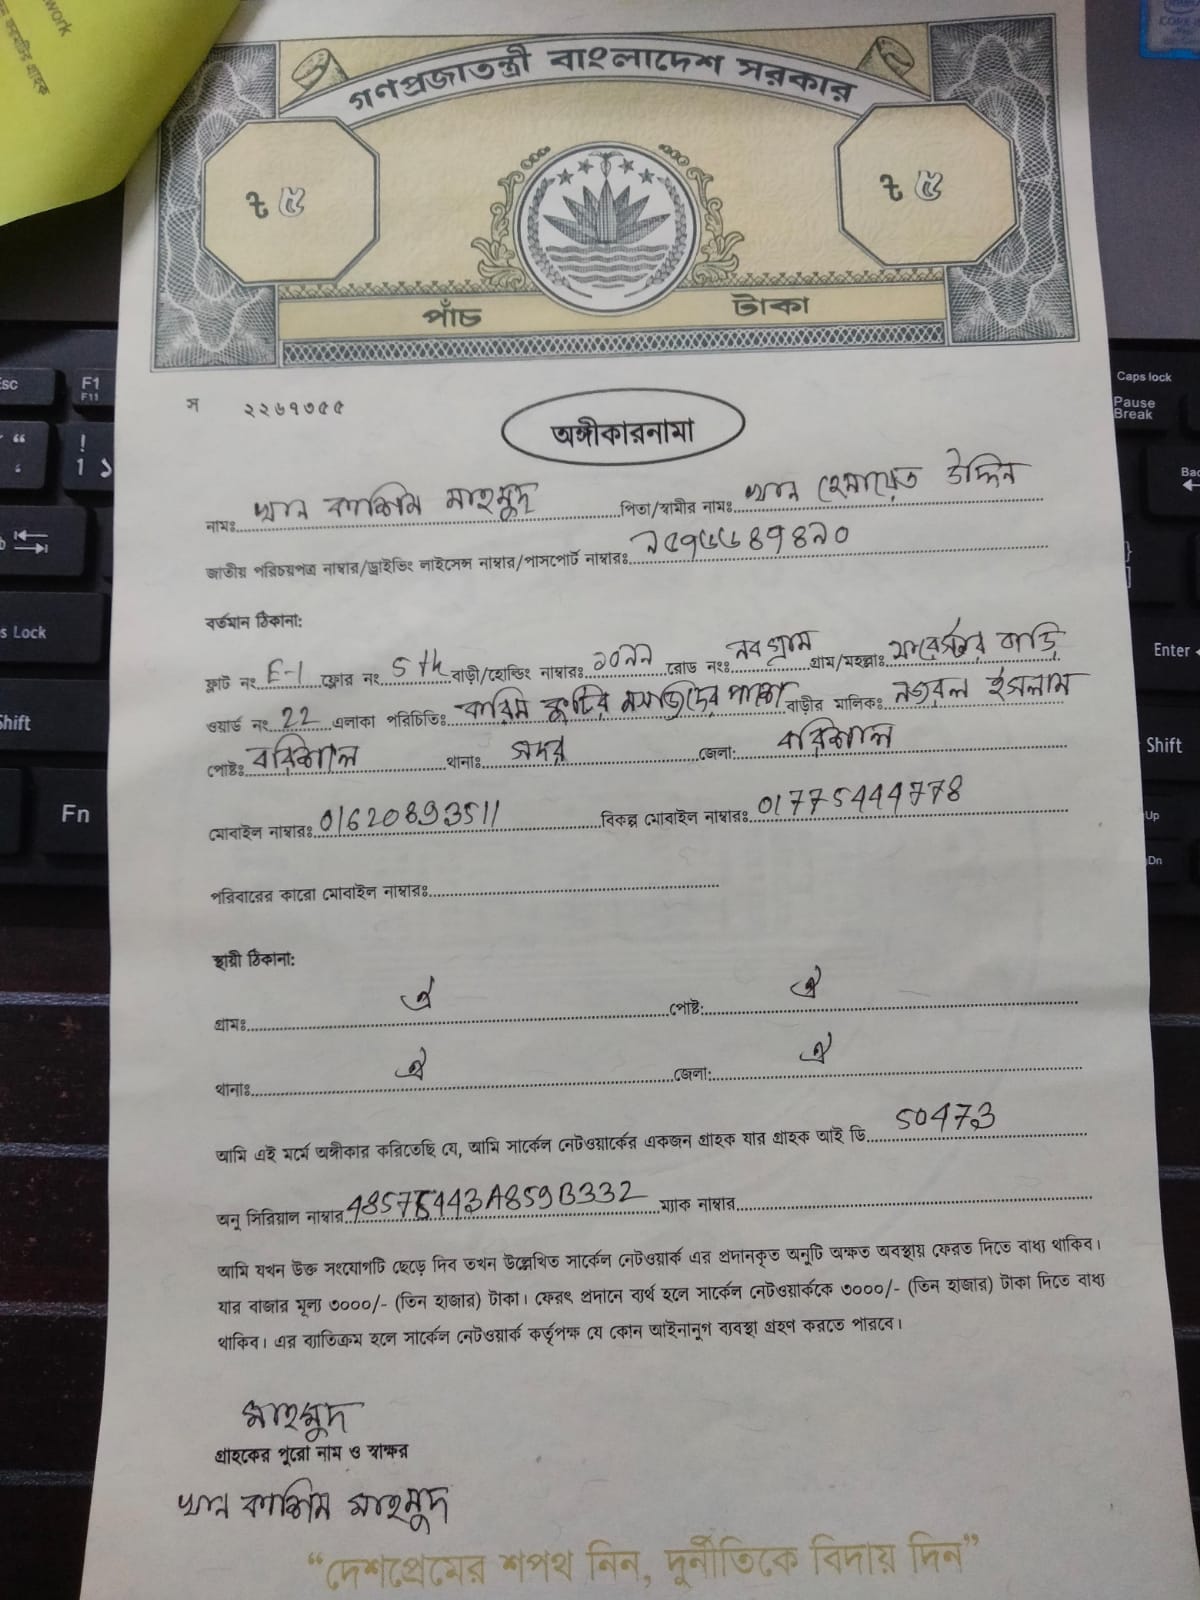 গণপ্রজাতন্ত্রী বাংলাদেশ সরকার
৳ ৫
৳ ৫
পাঁচ টাকা
স ২২৬৭৩৫৫
অঙ্গীকারনামা
নামঃ খান কাশিম মাহমুদ পিতা/স্বামীর নামঃ খান হেমায়েত উদ্দিন
জাতীয় পরিচয়পত্র নাম্বার/ড্রাইভিং লাইসেন্স নাম্বার/পাসপোর্ট নাম্বারঃ
বর্তমান ঠিকানা:
ফ্লাট নং E-1 ফ্লোর নং 5th বাড়ী/হোল্ডিং নাম্বারঃ ১০৯৯ রোড নংঃ নবগ্রাম গ্রাম/মহল্লাঃ বাড়ি
ওয়ার্ড নং 22 এলাকা পরিচিতিঃ করিম কুটির মসজিদের পাশে বাড়ীর মালিকঃ নজরুল ইসলাম
পোষ্টঃ বরিশাল থানাঃ সদর জেলা: বরিশাল
মোবাইল নাম্বারঃ 01620893511 বিকল্প মোবাইল নাম্বারঃ 01775444778
পরিবারের কারো মোবাইল নাম্বারঃ
স্থায়ী ঠিকানা:
গ্রামঃ ঐ পোষ্ট: ঐ
থানাঃ ঐ জেলা: ঐ
আমি এই মর্মে অঙ্গীকার করিতেছি যে, আমি সার্কেল নেটওয়ার্কের একজন গ্রাহক যার গ্রাহক আই ডি 50473
অনু সিরিয়াল নাম্বার 48575443A859B332 ম্যাক নাম্বার
আমি যখন উক্ত সংযোগটি ছেড়ে দিব তখন উল্লেখিত সার্কেল নেটওয়ার্ক এর প্রদানকৃত অনুটি অক্ষত অবস্থায় ফেরত দিতে বাধ্য থাকিব।
যার বাজার মূল্য ৩০০০/- (তিন হাজার) টাকা। ফেরৎ প্রদানে ব্যর্থ হলে সার্কেল নেটওয়ার্ককে ৩০০০/- (তিন হাজার) টাকা দিতে বাধ্য
থাকিব। এর ব্যাতিক্রম হলে সার্কেল নেটওয়ার্ক কর্তৃপক্ষ যে কোন আইনানুগ ব্যবস্থা গ্রহণ করতে পারবে।
মাহমুদ
গ্রাহকের পুরো নাম ও স্বাক্ষর
খান কাশিম মাহমুদ
“দেশপ্রেমের শপথ নিন, দুর্নীতিকে বিদায় দিন”
Esc
F1
F11
Fn
Caps lock
Pause
Break
Enter
Shift